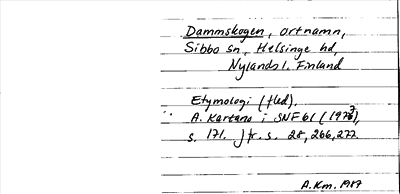 Dammskogen, ortnamn,
Sibbo sn, Helsinge hd,
Nylands l. Finland
Etymologi (fled).
A. Kartano i SNF 61 (1973),
s. 171. Jfr. s. 28, 266, 277.
A.Km. 1987